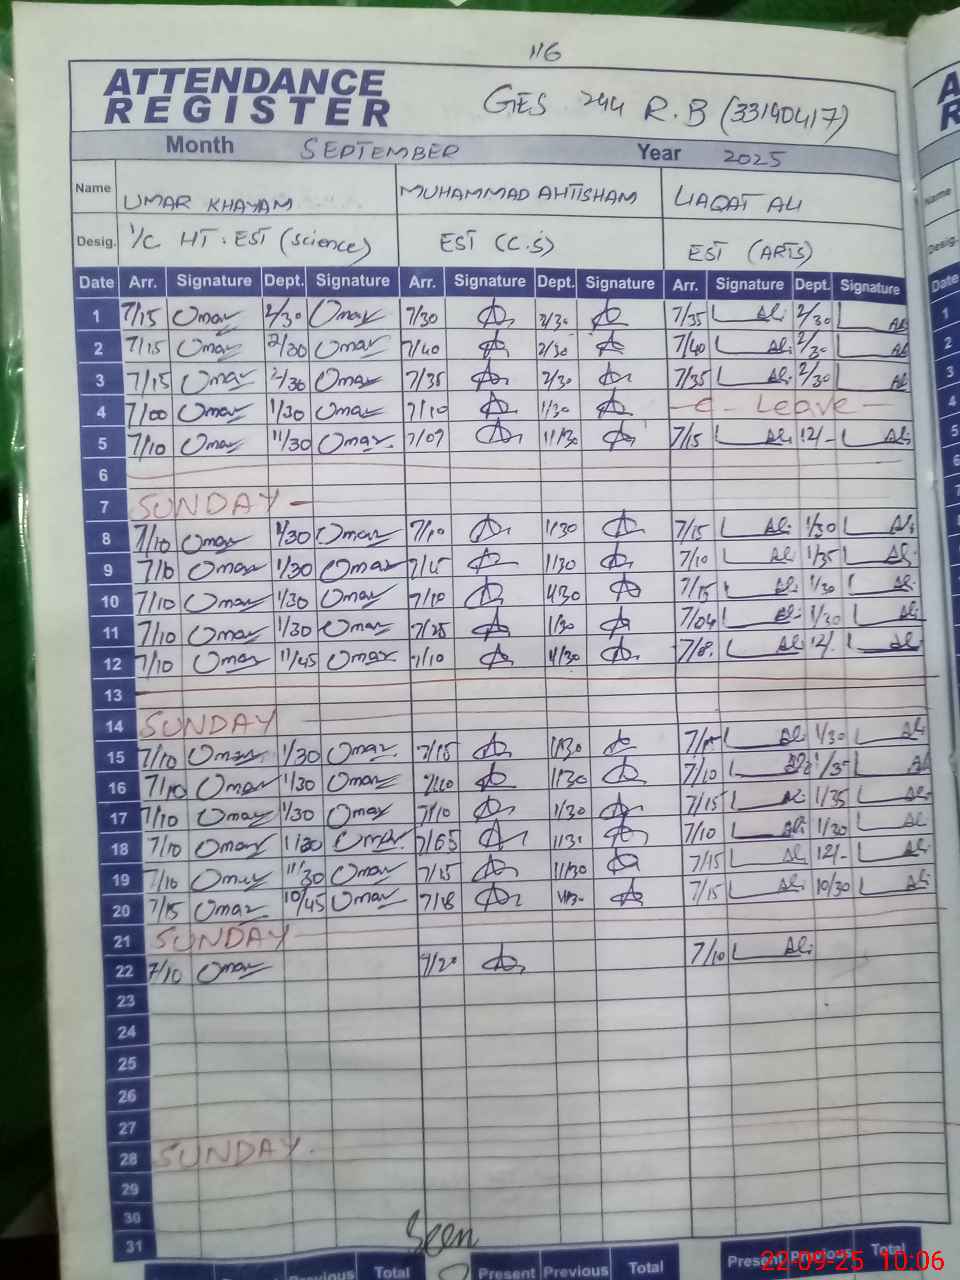 116
ATTENDANCE
REGISTER
GES 244 R.B (33140417)
Month SEPTEMBER Year 2025
Name UMAR KHAYAM MUHAMMAD AHTISHAM LIAQAT ALI
Desig. I/C HT: EST (Science) EST (C.S) EST (ARTS)
Date Arr. Signature Dept. Signature Arr. Signature Dept. Signature Arr. Signature Dept. Signature
1 7/15 Omar 2/30 Omar 7/30 2/30 7/35 Ali 2/30 Ali
2 7/15 Omar 2/30 Omar 7/40 2/30 7/40 Ali 2/30 Ali
3 7/15 Omar 2/30 Omar 7/35 2/30 7/35 Ali 2/30 Ali
4 7/00 Omar 1/30 Omar 7/10 1/30 Leave
5 7/10 Omar 11/30 Omar 7/07 11/30 7/15 Ali 12/- Ali
6
7 SUNDAY
8 7/10 Omar 1/30 Omar 7/10 1/30 7/15 Ali 1/30 Ali
9 7/10 Omar 1/30 Omar 7/15 1/30 7/10 Ali 1/35 Ali
10 7/10 Omar 1/30 Omar 7/10 1/30 7/15 Ali 1/30 Ali
11 7/10 Omar 1/30 Omar 7/25 1/30 7/04 Ali 1/30 Ali
12 7/10 Omar 11/45 Omar 7/10 11/30 7/8 Ali 12/- Ali
13
14 SUNDAY
15 7/10 Omar 1/30 Omar 7/15 1/30 Ali 1/30 Ali
16 7/10 Omar 1/30 Omar 7/10 1/30 7/10 Ali 1/35 Ali
17 7/10 Omar 1/30 Omar 7/10 1/30 7/15 Ali 1/35 Ali
18 7/10 Omar 11/30 Omar 7/10 Ali 1/30 Ali
19 7/10 Omar 11/30 Omar 7/15 11/30 7/15 Ali 12/- Ali
20 7/15 Omar 10/45 Omar 7/18 7/15 Ali 10/30 Ali
21 SUNDAY
22 7/10 Omar 7/20 7/10 Ali
23
24
25
26
27
28 SUNDAY
29
30
31
Seen
Previous Total Present Previous Total Present Previous Total
22-09-25 10:06